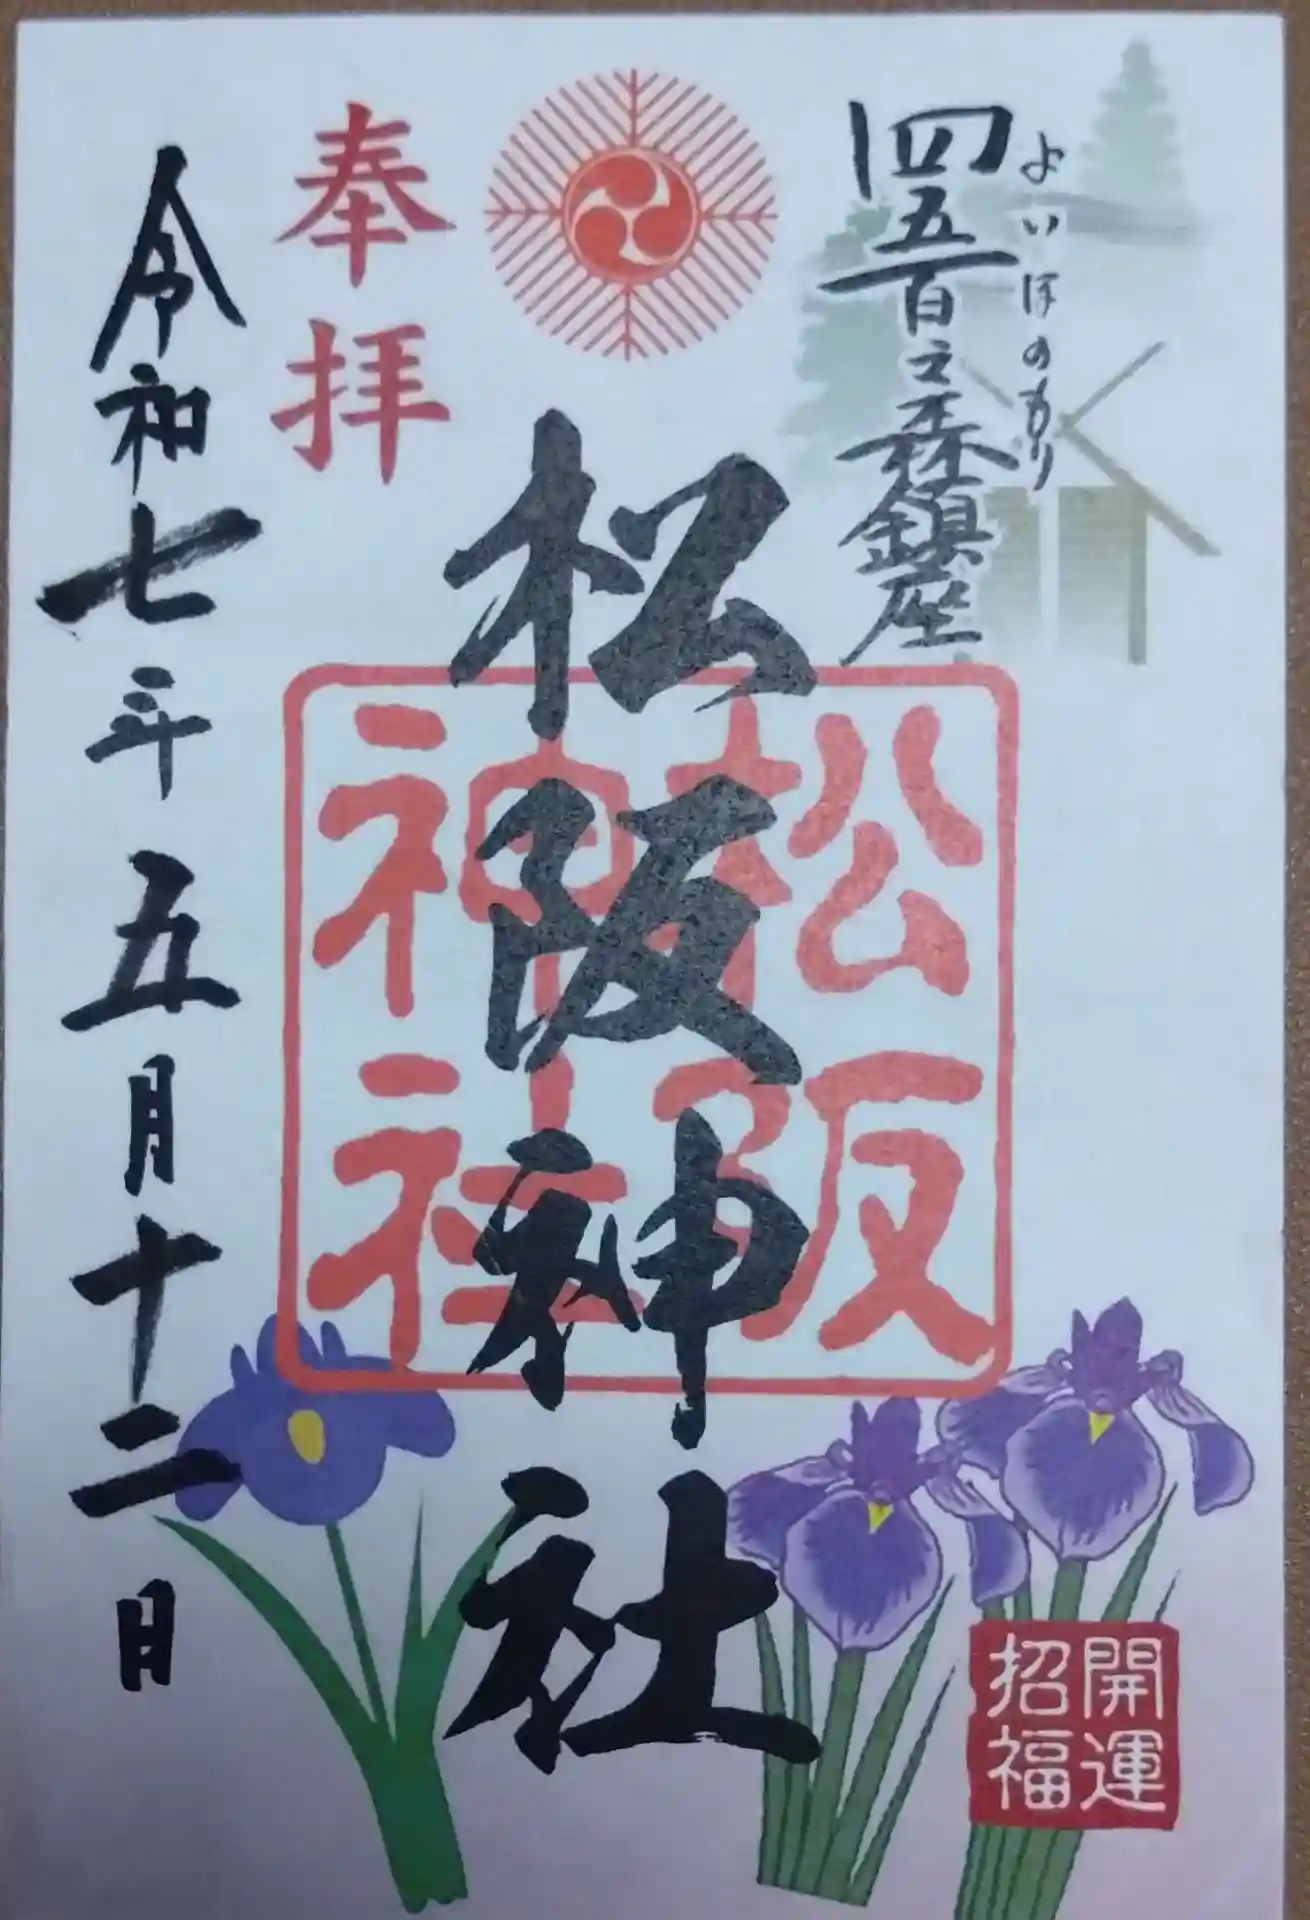 四五百之森鎮座
よいほのもり
奉拝
松阪神社
松阪
神社
令和七年五月十二日
開運
招福